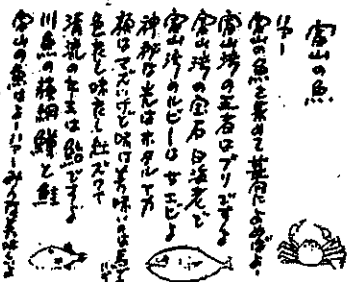 富山の魚
リァー
富山の魚を集めて葉月によめばよ
富山湾の王者はブリですよ
富山湾の宝石白海老で
富山湾のルビーは甘エビよ
神秘な光はホタルイカ
顔はマズいけど味は美味い
色も味も紅ズワイ
清流の女王は鮎ですよ
川魚の横綱鱒と鮭
富山の魚はよーリァーみんな美味いよ